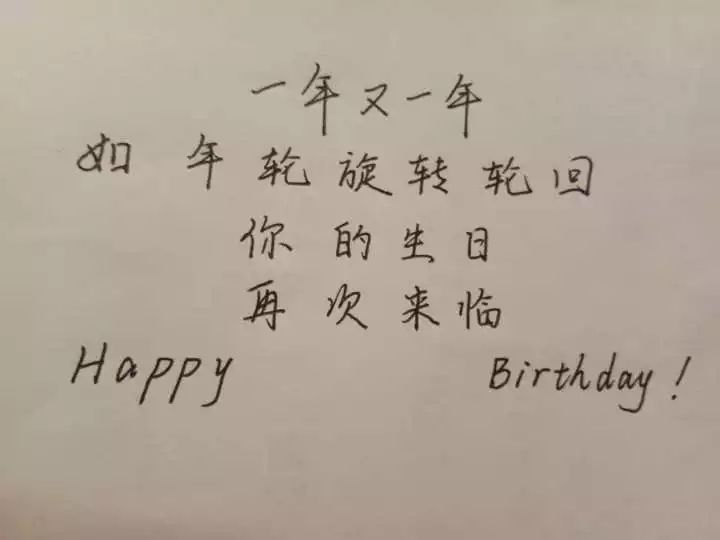 一年又一年
如年轮旋转轮回
你的生日
再次来临
Happy Birthday!